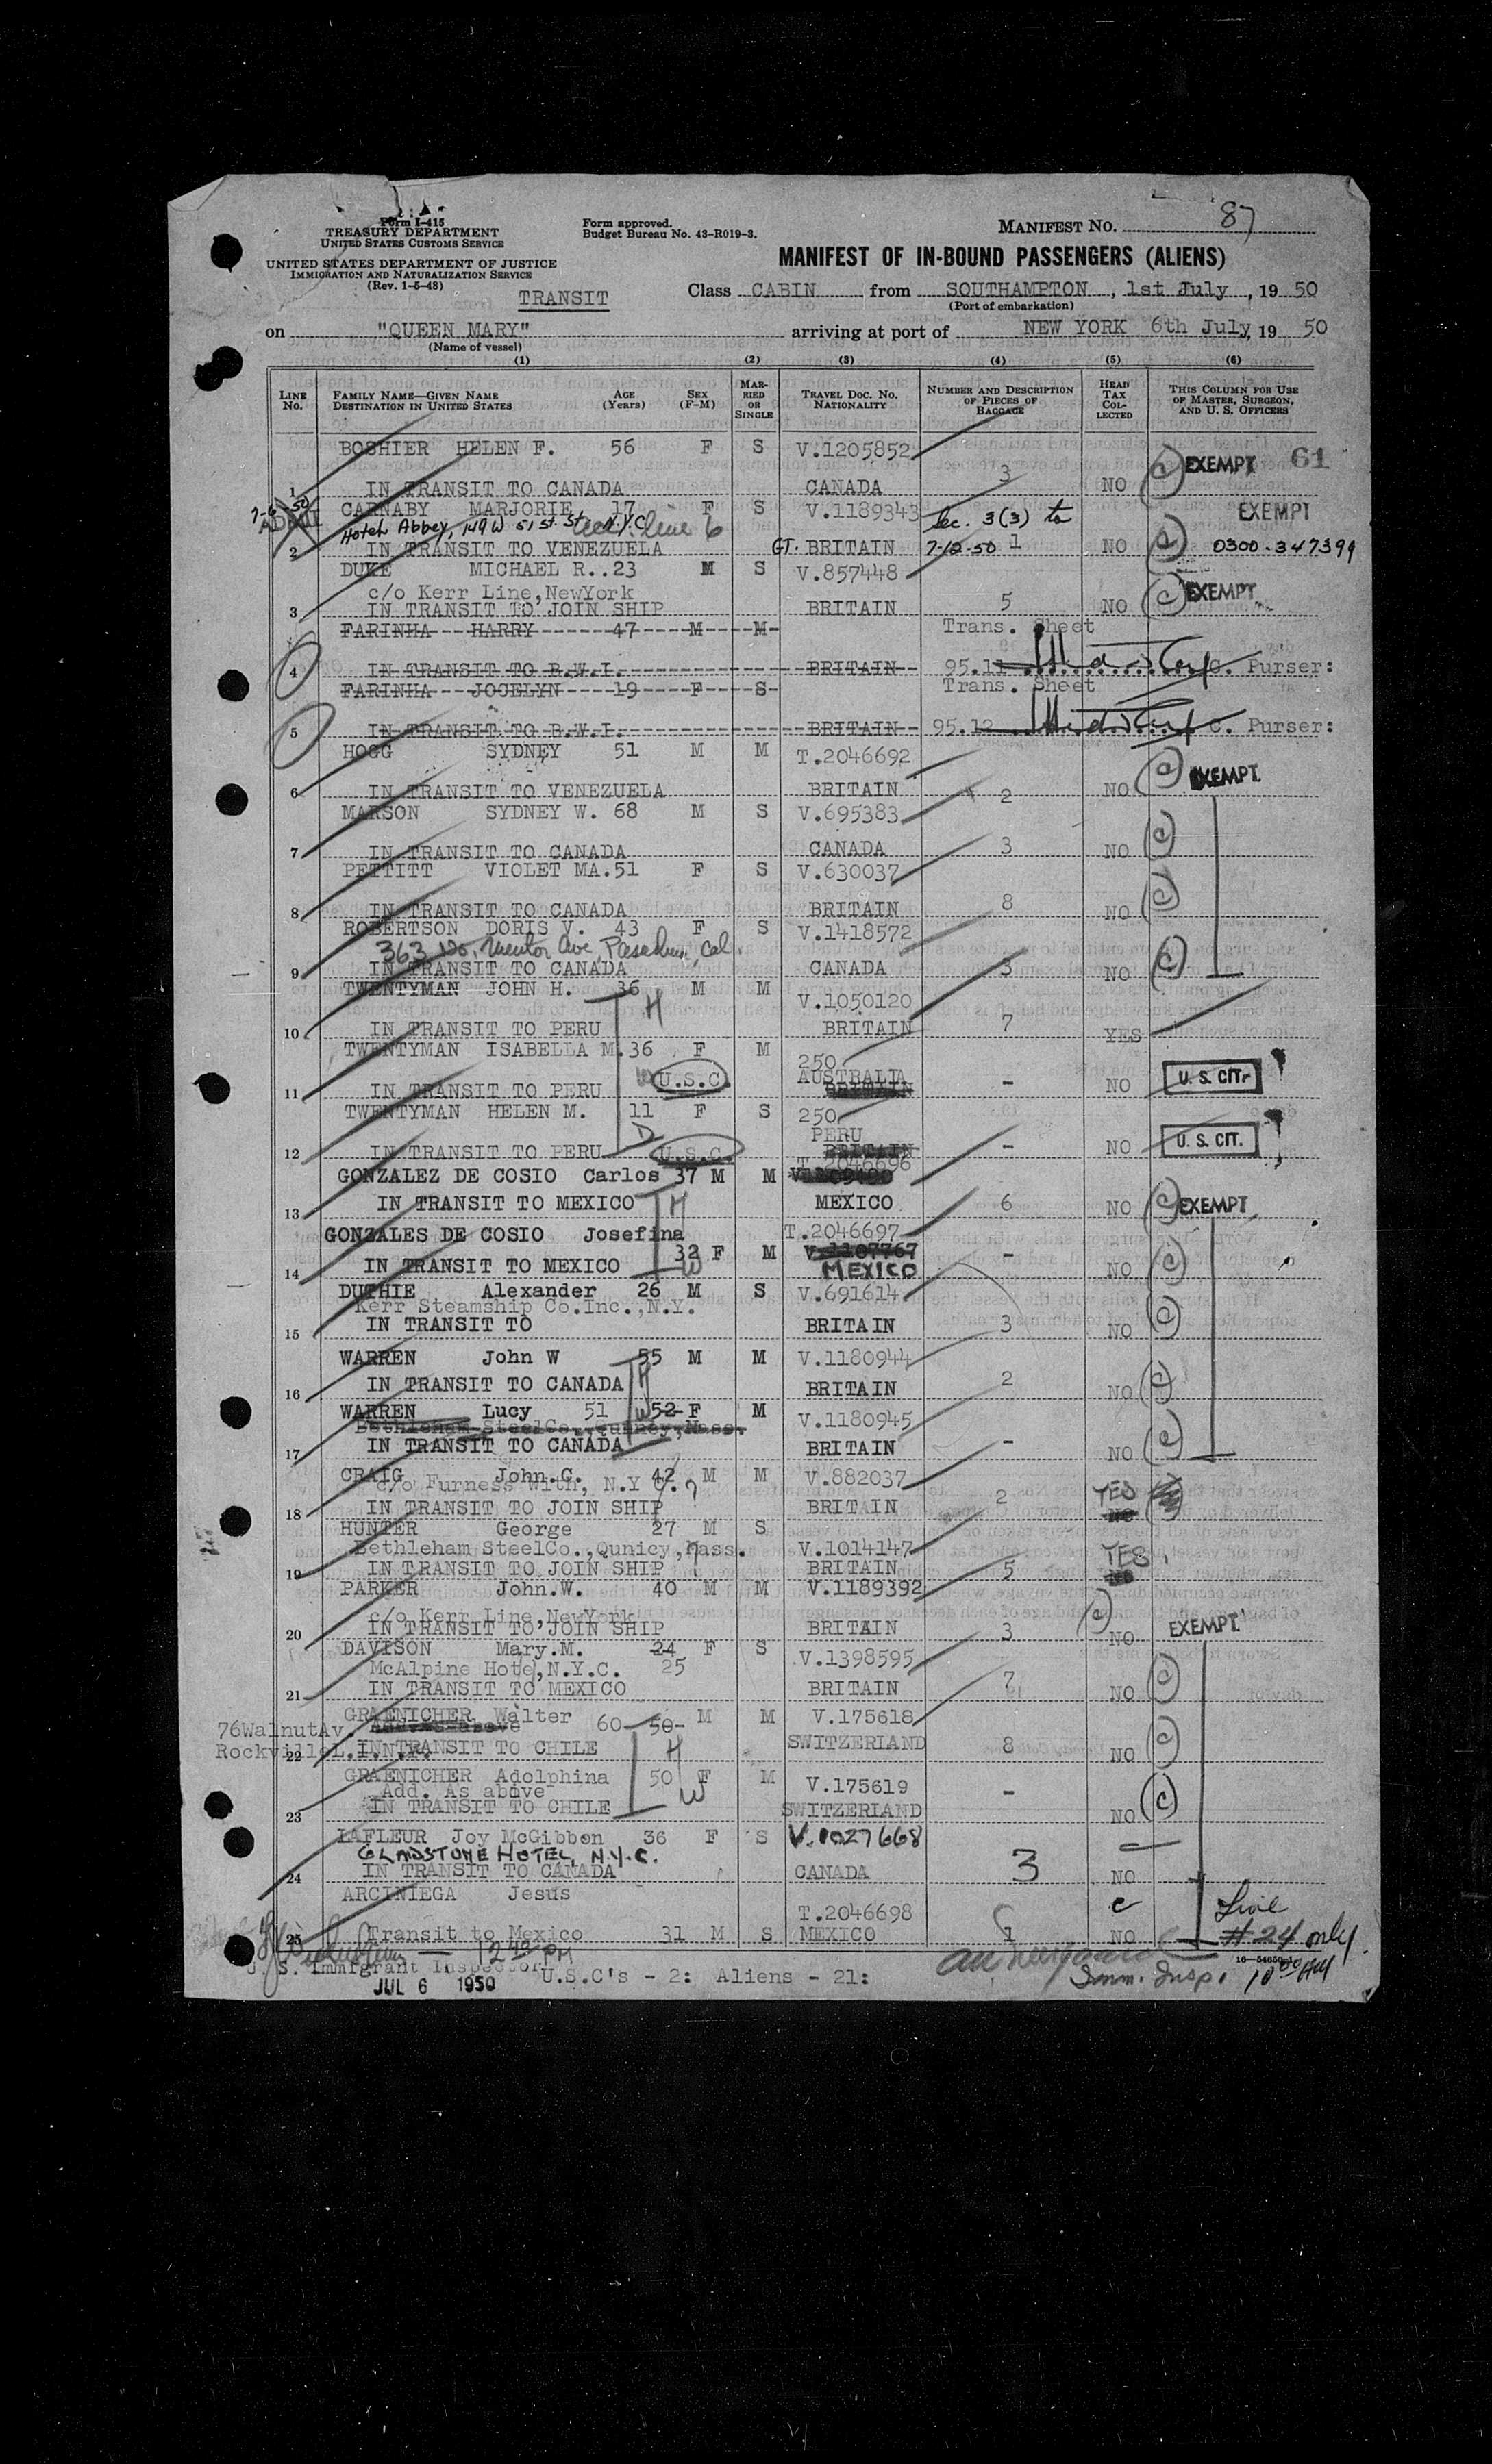 Form I-415
TREASURY DEPARTMENT
UNITED STATES CUSTOMS SERVICE
UNITED STATES DEPARTMENT OF JUSTICE
IMMIGRATION AND NATURALIZATION SERVICE
(Rev. 1-5-48)
Form approved.
Budget Bureau No. 43-R019-3.
MANIFEST NO. 87
MANIFEST OF IN-BOUND PASSENGERS (ALIENS)
TRANSIT
Class CABIN from SOUTHAMPTON, 1st July, 19 50
(Port of embarkation)
on "QUEEN MARY" arriving at port of NEW YORK 6th July, 19 50
(Name of vessel)
(1) (2) (3) (4) (5) (6)
LINE No. FAMILY NAME—GIVEN NAME DESTINATION IN UNITED STATES AGE (Years) SEX (F-M) MARRIED OR SINGLE TRAVEL DOC. NO. NATIONALITY NUMBER AND DESCRIPTION OF PIECES OF BAGGAGE HEAD TAX COLLECTED THIS COLUMN FOR USE OF MASTER, SURGEON, AND U. S. OFFICERS
BOSHIER HELEN F. 56 F S V.1205852
1 IN TRANSIT TO CANADA CANADA 3 NO (c) EXEMPT 61
CARNABY MARJORIE 17 F S V.1189343 Sec. 3(3) to EXEMPT
Hotel Abbey, 149 W 51 St. N.Y.C. line 6
2 IN TRANSIT TO VENEZUELA GT. BRITAIN 7-12-50 1 NO 0300-347399
DUKE MICHAEL R..23 M S V.857448
c/o Kerr Line, NewYork
3 IN TRANSIT TO JOIN SHIP BRITAIN 5 NO (c) EXEMPT
FARINHA HARRY 47 M M Trans. Sheet
4 IN TRANSIT TO B.W.I. BRITAIN 95.11 C. Purser:
FARINHA JOCELYN 19 F S Trans. Sheet
5 IN TRANSIT TO B.W.I. BRITAIN 95.12 C. Purser:
HOGG SYDNEY 51 M M T.2046692
6 IN TRANSIT TO VENEZUELA BRITAIN 2 NO EXEMPT
MARSON SYDNEY W. 68 M S V.695383
7 IN TRANSIT TO CANADA CANADA 3 NO (c)
PETTITT VIOLET MA.51 F S V.630037
8 IN TRANSIT TO CANADA BRITAIN 8 NO (c)
ROBERTSON DORIS V. 43 F S V.1418572
363 No. Mentor Ave, Pasadena, Cal.
9 IN TRANSIT TO CANADA CANADA 3 NO (c)
TWENTYMAN JOHN H. 36 M M V.1050120
10 IN TRANSIT TO PERU H BRITAIN 7 YES
TWENTYMAN ISABELLA M.36 F M 250
11 IN TRANSIT TO PERU W U.S.C. AUSTRALIA BRITAIN - NO U. S. CIT.
TWENTYMAN HELEN M. 11 F S 250
12 IN TRANSIT TO PERU D U.S.C. PERU BRITAIN - NO U. S. CIT.
GONZALEZ DE COSIO Carlos 37 M M T.2046696
13 IN TRANSIT TO MEXICO H MEXICO 6 NO (c) EXEMPT
GONZALES DE COSIO Josefina T.2046697
32 F M V.1107767
14 IN TRANSIT TO MEXICO W MEXICO - NO (c)
DUTHIE Alexander 26 M S V.691614
Kerr Steamship Co.Inc.,N.Y.
15 IN TRANSIT TO BRITAIN 3 NO (c)
WARREN John W 55 M M V.1180944
16 IN TRANSIT TO CANADA H BRITAIN 2 NO (c)
WARREN Lucy 51 W 52 F M V.1180945
Bethleham SteelCo., Quincy,Mass.
17 IN TRANSIT TO CANADA BRITAIN - NO (c)
CRAIG John.C. 42 M M V.882037
c/o Furness With, N.Y C.?
18 IN TRANSIT TO JOIN SHIP BRITAIN 2 YES NO
HUNTER George 27 M S
Bethleham SteelCo.,Qunicy,Mass. V.1014147
19 IN TRANSIT TO JOIN SHIP BRITAIN 5 YES NO
PARKER John.W. 40 M M V.1189392
c/o Kerr Line,NewYork
20 IN TRANSIT TO JOIN SHIP BRITAIN 3 (c) NO EXEMPT
DAVISON Mary.M. 24 F S V.1398595
McAlpine Hotel,N.Y.C. 25
21 IN TRANSIT TO MEXICO BRITAIN 7 NO (c)
GRAENICHER Walter 60 50 M M V.175618
76WalnutAv.
Rockville L.I.N.Y.
22 IN TRANSIT TO CHILE H SWITZERLAND 8 NO (c)
GRAENICHER Adolphina 50 F M V.175619
Add. As above W
23 IN TRANSIT TO CHILE SWITZERLAND - NO (c)
LAFLEUR Joy McGibbon 36 F S V.1027668
GLADSTONE HOTEL, N.Y.C.
24 IN TRANSIT TO CANADA CANADA 3 NO
ARCINIEGA Jesus T.2046698 c Line
25 Transit to Mexico 31 M S MEXICO 1 NO #24 only
U. S. Immigrant Inspector
JUL 6 1950 U.S.C's - 2: Aliens - 21: Imm. Insp.